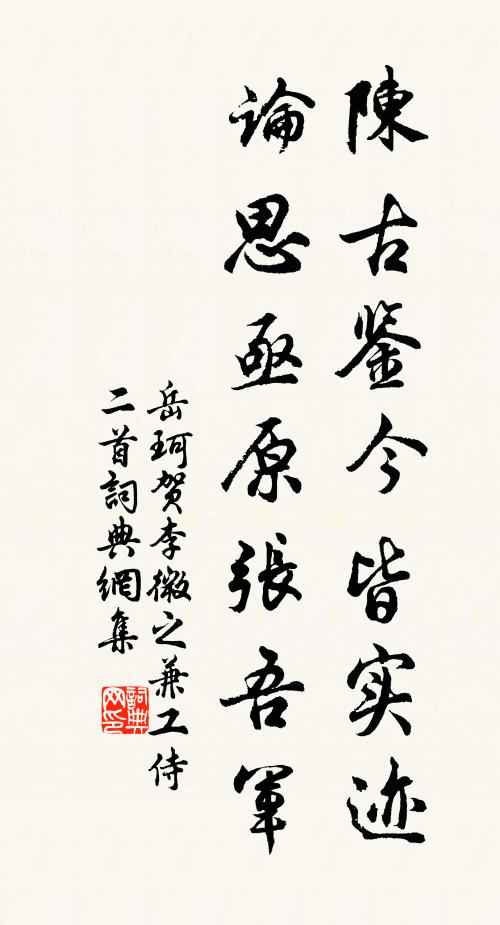 陳古鉴今皆实迹
論思亟原張吾軍
岳珂贺李微之兼工侍
二首詞典網集
詞典
网印